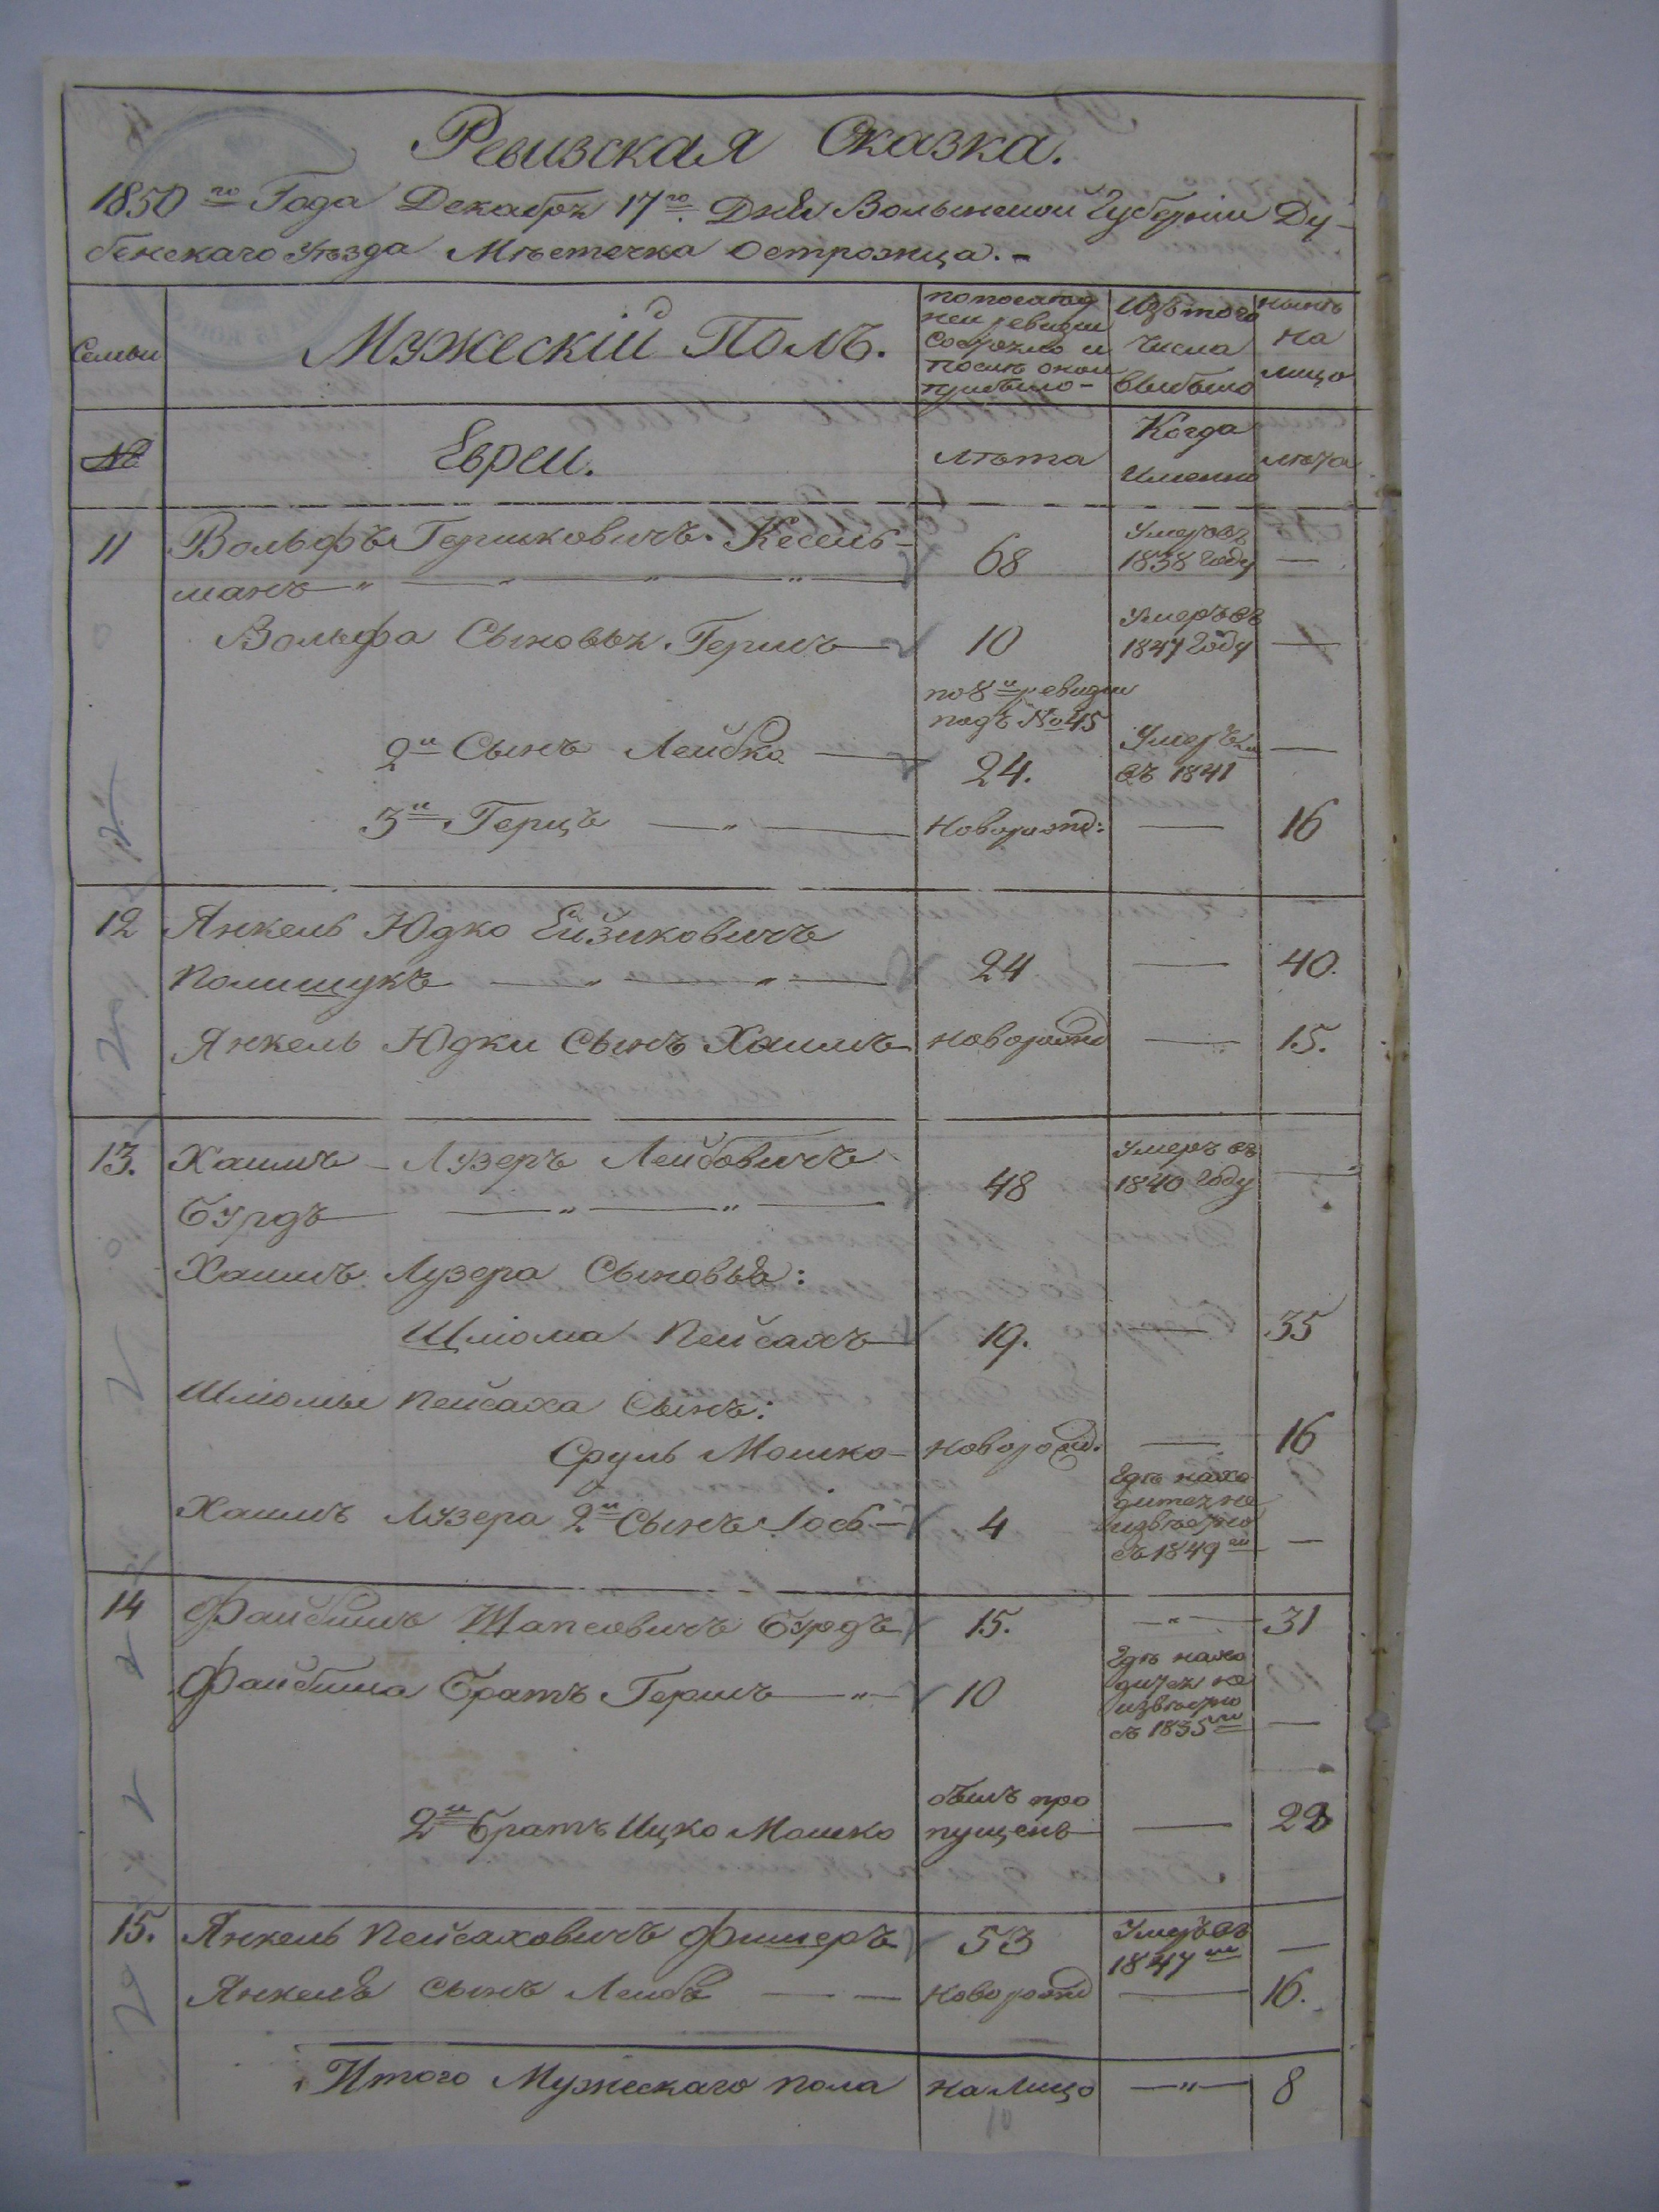 Ревизская Сказка.
1850го Года Декабря 17го Дня Волынской Губерніи Ду-
бенскаго Уѣзда Мѣстечка Острожца.-
Семьи
Мужескій Полъ.
по послед
ней ревизіи
Состояло и
послѣ оной
прибыло-
Изъ того
Числа
выбыло
нынѣ
на
лицо
№
Евреи.
лѣта
Когда
Именно
лѣта
11 Вольфъ Гершковичъ Кесель-
манъ 68 Умеръ въ 1838 году —
Вольфа Сыновья Гершъ 10 Умеръ въ 1847 Году —
по 8й ревизіи
подъ № 45
2й Сынъ Лейбко 24. Умеръ въ 1841 —
3й Герцъ Новорожд: — 16
12 Янкель Юдко Ейзиковичъ
Полищукъ 24 — 40.
Янкель Юдки Сынъ Хаимъ новорожд — 15.
13. Хаимъ Лузеръ Лейбовичъ
Бурдъ 48 Умеръ въ 1840 Году —
Хаимъ Лузера Сыновья:
Шлиома Пейсахъ 19. — 35
Шлиомы Пейсаха Сынъ:
Сруль Мошко новорожд. — 16
Хаимъ Лузера 2й Сынъ Іось 4 Гдѣ находится не извѣстно съ 1849го —
14 Файбишъ Шапсовичъ Бурдъ 15. — 31
Файбиша Братъ Гершъ 10 Гдѣ находится не извѣстно съ 1835го —
2й Братъ Ицко Мошко былъ пропущенъ — 22
15. Янкель Пейсаховичъ Фишеръ 53 Умеръ въ 1847м —
Янкеля сынъ Лейбъ новорожд — 16.
Итого Мужескаго пола на Лицо — 8
10